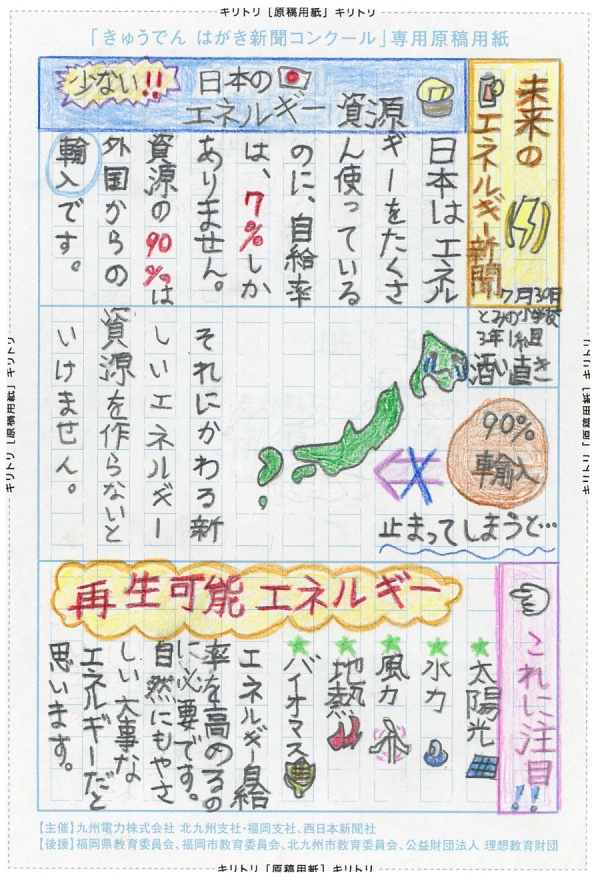 キリトリ［原稿用紙］キリトリ
「きゅうでん はがき新聞コンクール」専用原稿用紙
未来の
エネルギー新聞
7月30日
とみの小学校
3年1組
酒い直き
少ない!!
日本の
エネルギー資源
日本はエネル
ギーをたくさ
ん使っている
のに、自給率
は、7%しか
ありません。
資源の90%は
外国からの
輸入です。
90%
輸入
止まってしまうと…
それにかわる新
しいエネルギー
資源を作らないと
いけません。
これに注目!!
再生可能エネルギー
太陽光
水力
風力
地熱
バイオマス
エネルギー自給
率を高めるの
に必要です。
自然にもやさ
しい大事な
エネルギーだと
思います。
【主催】九州電力株式会社 北九州支社・福岡支社、西日本新聞社
【後援】福岡県教育委員会、福岡市教育委員会、北九州市教育委員会、公益財団法人 理想教育財団
キリトリ［原稿用紙］キリトリ
キリトリ［原稿用紙］キリトリ
キリトリ［原稿用紙］キリトリ